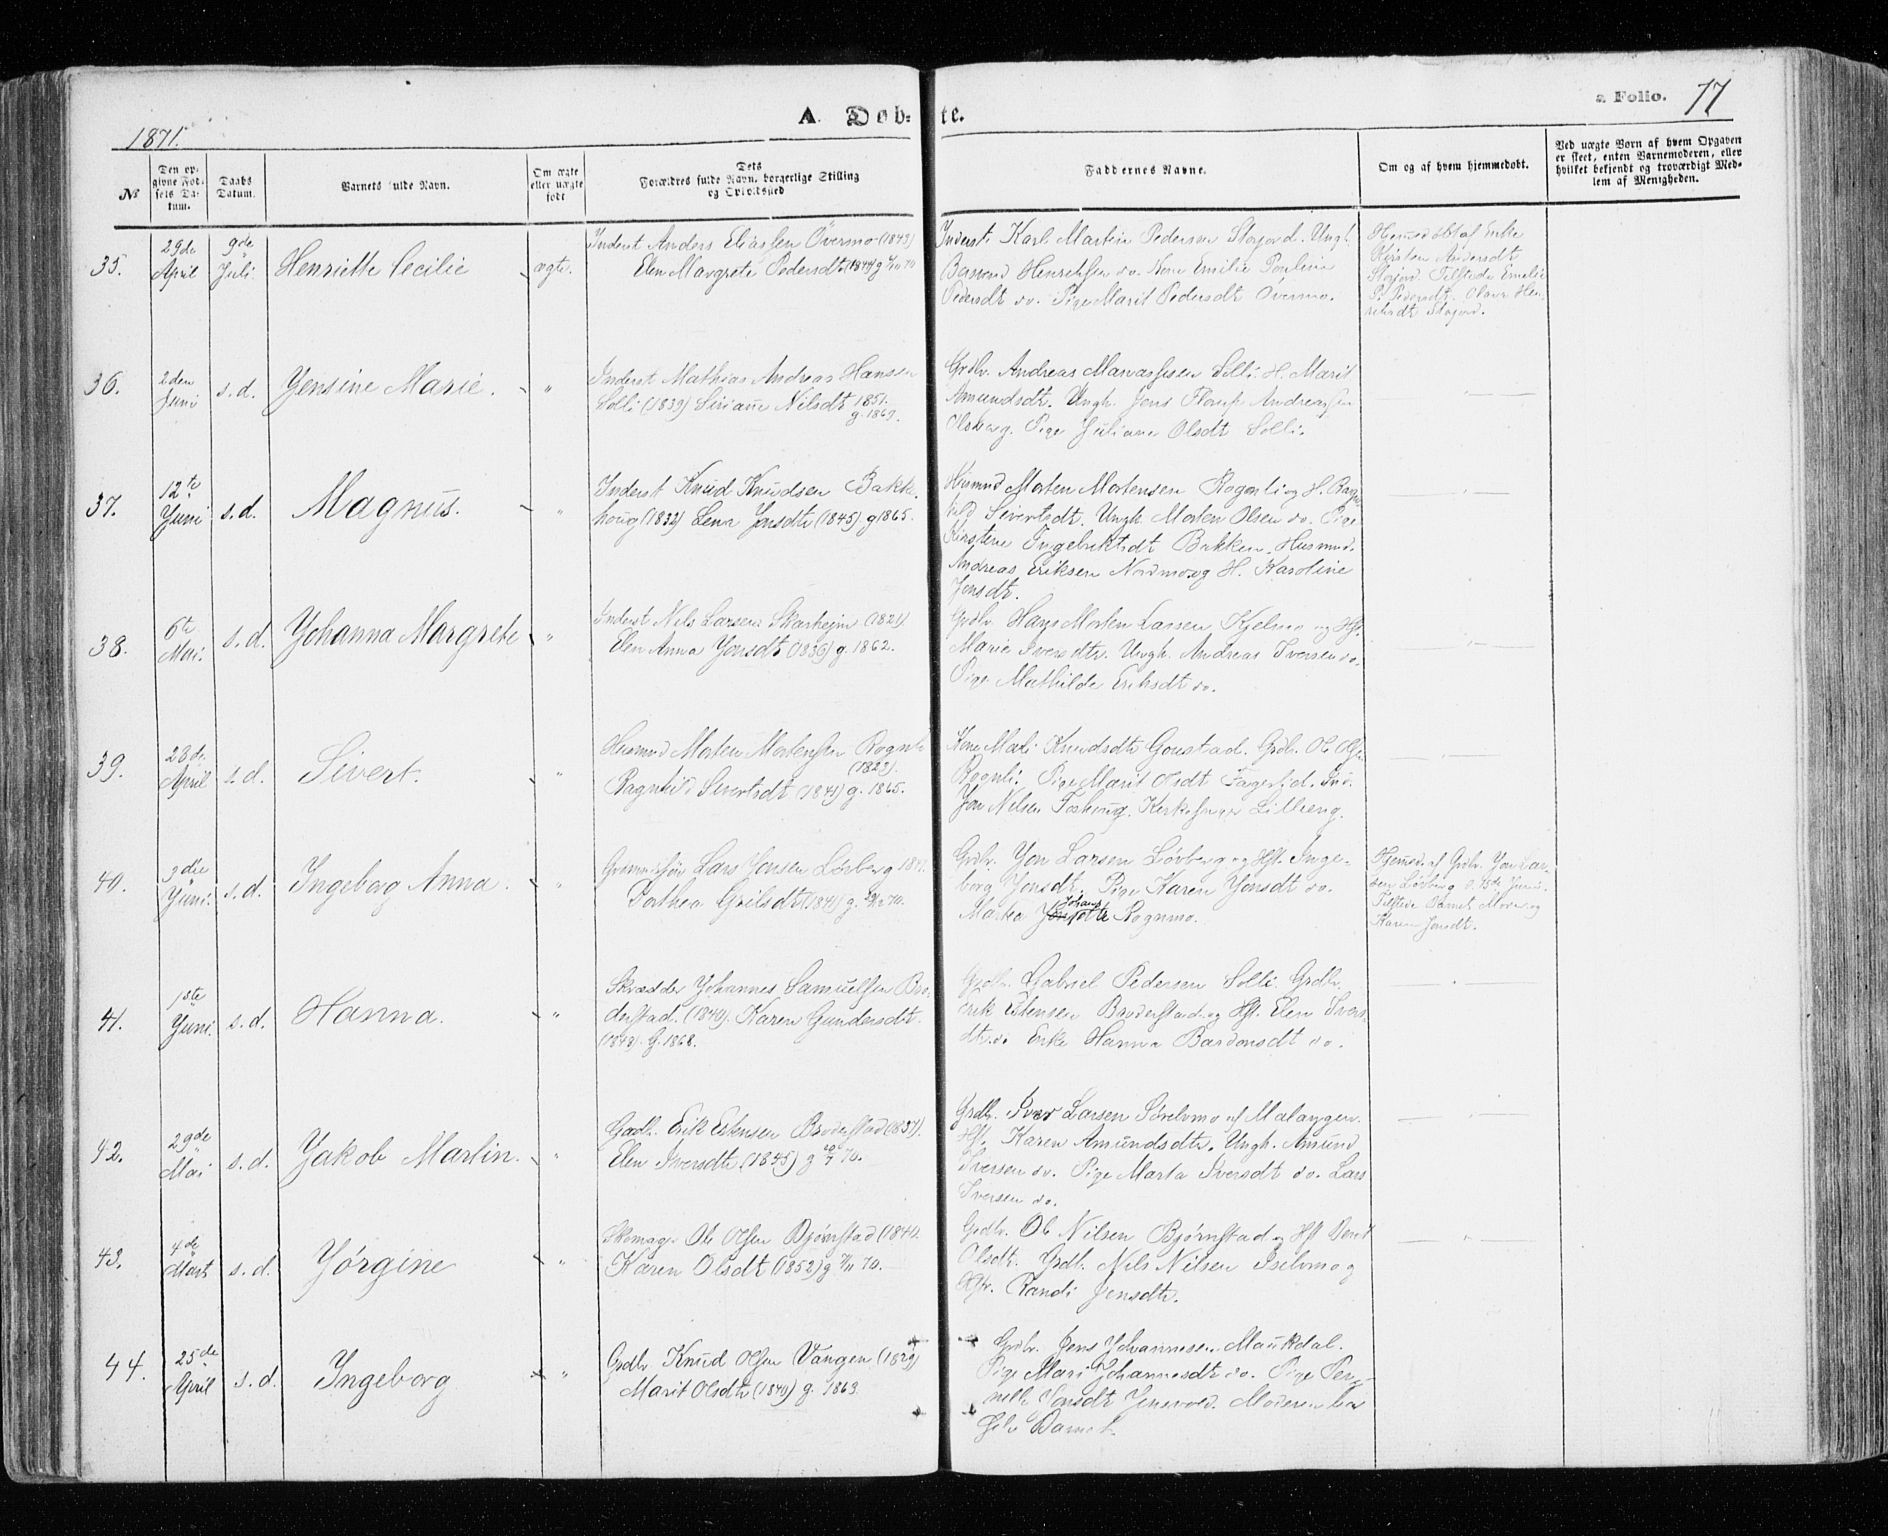 1871.
A. Døb-te.
a Folio. 77
№
Den op-
givne Fød-
sels Da-
tum.
Daabs
Datum.
Barnets fulde Navn.
Om ægte
eller uægte
født
Dets
Forældres fulde Navn, borgerlige Stilling
og Opholdssted
Faddernes Navne.
Om og af hvem hjemmedøbt.
Ved uægte Børn af hvem Opgaven
er skeet, enten Barnemoderen, eller
hvilket bekjendt og troværdigt Med-
lem af Menigheden.
35.
29de
April
9de
Juli
Henriette Cecilie
ægte.
Inderst Anders Eliassen Övermo (1843)
Elen Margrete Pedersdt. (1844) g 70
Inderst. Karl Martin Pedersen Storjord. Ungk.
Henriksen do. Kone Emilie Paulina
Pedersdt do. Pige Marit Pedersdt Övermo.
Hjemedöbt af Enke
Kirsten Andersdt
Storjord. Tilstede Emelie
P. Pedersdt. Hen-
riksdt Storjord.
36.
2den
Juni
s.d.
Jensine Marie.
"
Inderst Mathias Andreas Hansen
Solli (1839) Nilsdt 1851.
g. 1869.
Grdbr. Andreas Solli. H. Marit
Amundsdt. Ungk. Jens Andreassen
Olsborg. Pige Juliane Olsdt Solli.
37.
12te
Juni
s.d.
Magnus.
"
Inderst Knud Knudsen Bakke-
houg (1832) Lena Jonsdt (1845) g 1865.
Husmnd Morten Mortensen Rognli og H. Ragn-
hild Sivertsdt. Ungk. Morten Olsen do. Pige
Kirstine Ingebriktsdt Bakken. Husmnd.
Andreas Eriksen Nordmo og H. Karoline
Jensdt.
38.
6te
Mai.
s.d.
Johanna Margrete
"
Inderst Nils Larsen (1821)
Elen Anna Jonsdt (1836) g. 1862.
Grdbr. Hans Morten Larsen Kjelmo og Hst.
Marie Iversdtr. Ungk. Andreas Iversen do.
Pige Mathilde Eriksdt do.
39.
28de
April
s.d.
Sivert.
"
Husmnd Morten Mortensen Rognli
(1822).
Ragnhild Sivertsdt (1841) g. 1865.
Kone Mali Knudsdtr Gonstad. Grdb. Ole Olsen
Rognli. Pige Marit Olsdt Fagerlid. Ind.
Jon Nilsen Foshoug. Kirkesanger Lilleeng.
40.
Juni.
s.d.
Ingeborg Anna.
"
Lars Jonsen Lövberg
Dorthea (1841) g. 70.
Grdbr. Jon Larsen Lövberg og Hst. Inge-
borg Jonsdt. Pige Karen Jonsdt do.
Johans
Marta Rognmo.
Hjemed. af Grdbr. Jon Lar-
sen Lövberg d. 15de Juni.
Tilstede Barnets Moder og
Karen Jonsdt.
41.
1ste
Juni.
s.d.
Hanna.
"
Skrædder Johannes Samuelsen Bro-
derstad. (1840). Karen Gundersdt.
(1848). G. 1868.
Grdbr. Gabriel Pedersen Solli. Grdbr.
Erik Estensen Broderstad og Hst. Elen Ivers-
dt. do. Enke Hanna Bardonsdt do.
42.
29de
Mai
s.d.
Jakob Martin.
"
Grdb. Erik Estensen Broderstad (1837).
Elen Iversdtr (1845) g 70.
Grdbr. Iver Larsen Sörelvmo af Malangen.
Hst. Karen Amundsdtr. Ungk. Amund
Iversen do. Pige Marta Iversdt do. Lars
Iversen do.
43.
4de
Mart
s.d.
Jörgine
"
Skomager Ole Olsen Björnstad (1840.
Karen Olsdt (1852) g 70.
Grdbr. Ole Nilsen Bjørnstad og Hst Berit
Olsdtr. Grdb. Nils Nilsen Iselvmo og
Randi Jensdtr.
44.
25de
April
s.d.
Ingeborg
"
Grdbr. Knud Olsen Vangen (1829)
Marit Olsdtr (1840) g. 1863.
Grdbr. Jens Johannesen Maukdal.
Pige Mari Johannesdt do. Pige Per-
nelle Jonsdt Jensvold. Moderen bar
Selv Barnet.